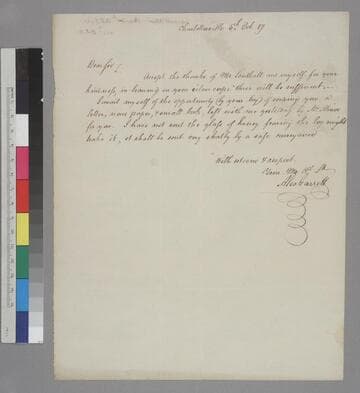 Charlottesville 4th Feb. 19
Dear Sir,
Accept the thanks of Mr and myself for your
kindness, in loaning us your silver cups: these will be sufficient.
I avail myself of the opportunity (by your boy) of sending you a
letter, news paper, & small book, left with me yesterday by Mr
for you. I have not sent the glass of honey fearing the boy might
break it, it shall be sent very shortly by a safe conveyance
With esteem & respect
I am yr Ob St
Alex Garrett